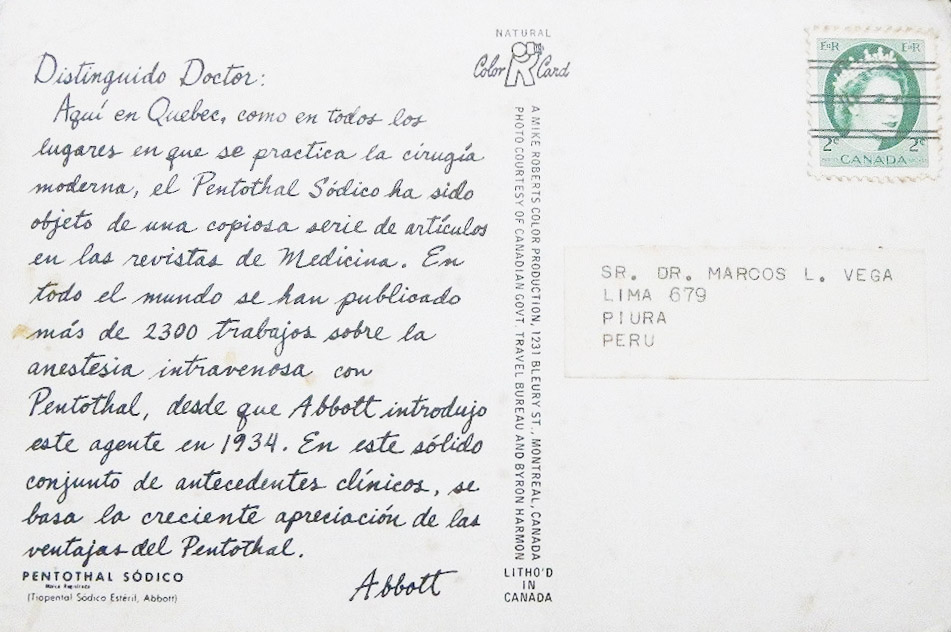 Distinguido Doctor:
Aquí en Quebec, como en todos los
lugares en que se practica la cirugía
moderna, el Pentothal Sódico ha sido
objeto de una copiosa serie de artículos
en las revistas de Medicina. En
todo el mundo se han publicado
más de 2300 trabajos sobre la
anestesia intravenosa con
Pentothal, desde que Abbott introdujo
este agente en 1934. En este sólido
conjunto de antecedentes clínicos, se
basa la creciente apreciación de las
ventajas del Pentothal.
Abbott
PENTOTHAL SÓDICO
Marca Registrada
(Tiopental Sódico Estéril, Abbott)
NATURAL
Color Card
A MIKE ROBERTS COLOR PRODUCTION, 1231 BLEURY ST., MONTREAL, CANADA
PHOTO COURTESY OF CANADIAN GOVT. TRAVEL BUREAU AND BYRON HARMON
LITHO'D
IN
CANADA
EIIR EIIR
2c 2c
CANADA
SR. DR. MARCOS L. VEGA
LIMA 679
PIURA
PERU